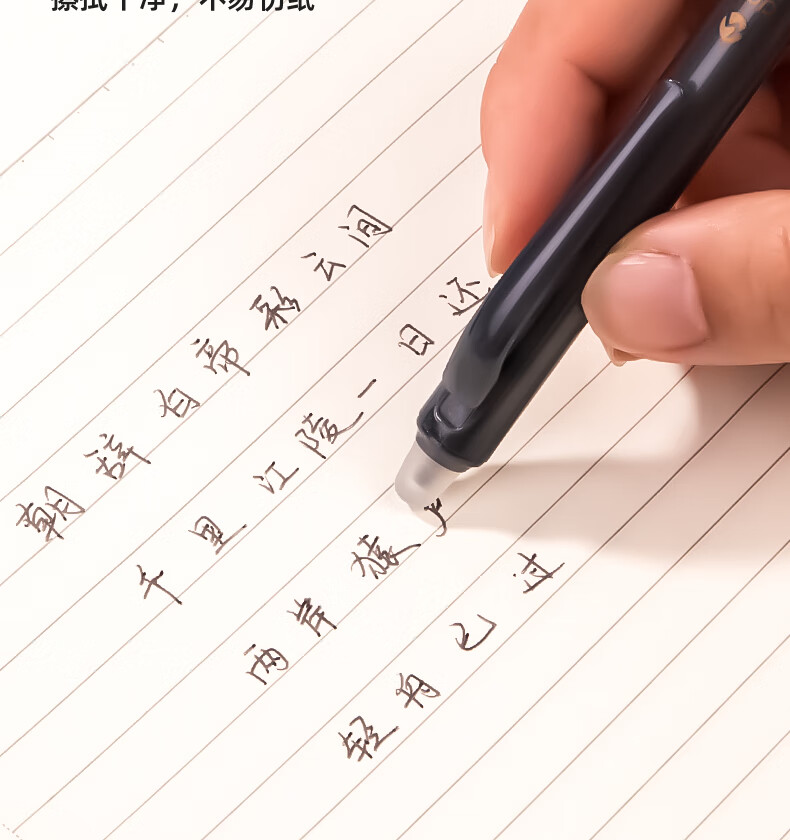 擦拭干净，不易伤纸
朝辞白帝彩云间
千里江陵一日还
两岸猿
轻舟已过